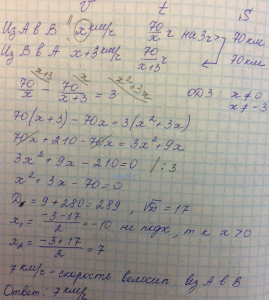 V t S
Из А в В x км/ч 70/x ч на 3ч > 70 км
Из В в А x+3 км/ч 70/x+3 ч 70 км
70/x - 70/x+3 = 3 ОДЗ x≠0
x≠-3
70(x+3) - 70x = 3(x²+3x)
70x + 210 - 70x = 3x² + 9x
3x² + 9x - 210 = 0 /:3
x² + 3x - 70 = 0
D = 9 + 280 = 289, √D = 17
x₁ = -3-17/2 = -10 не подх, т к x>0
x₂ = -3+17/2 = 7
7 км/ч - скорость велосип из А в В
Ответ: 7 км/ч